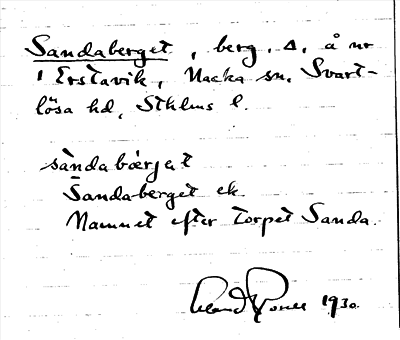 Sandaberget, berg, Δ, å nr
1 Erstavik, Nacka sn, Svart-
lösa hd, Sthlms l.
sàndabǽrjet
Sandaberget ek.
Namnet efter torpet Sanda.
1930